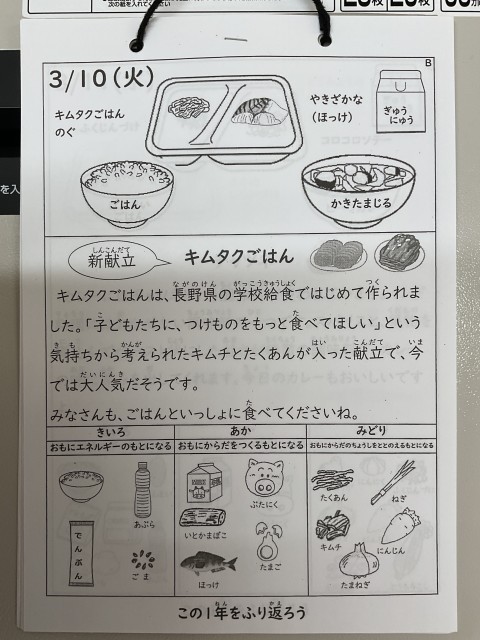 次の紙を入れてください
B
3/10(火)
キムタクごはん
のぐ
やきざかな
(ほっけ)
ぎゅう
にゅう
ごはん
かきたまじる
しんこんだて
新献立
キムタクごはん
キムタクごはんは、長野県の学校給食ではじめて作られま
した。「子どもたちに、つけものをもっと食べてほしい」という
気持ちから考えられたキムチとたくあんが入った献立で、今
では大人気だそうです。
みなさんも、ごはんといっしょに食べてくださいね。
きいろ
おもにエネルギーのもとになる
あか
おもにからだをつくるもとになる
みどり
おもにからだのちょうしをととのえるもとになる
あぶら
でんぷん
ごま
ぶたにく
いとかまぼこ
たまご
ほっけ
たくあん
ねぎ
キムチ
にんじん
たまねぎ
この1年をふり返ろう